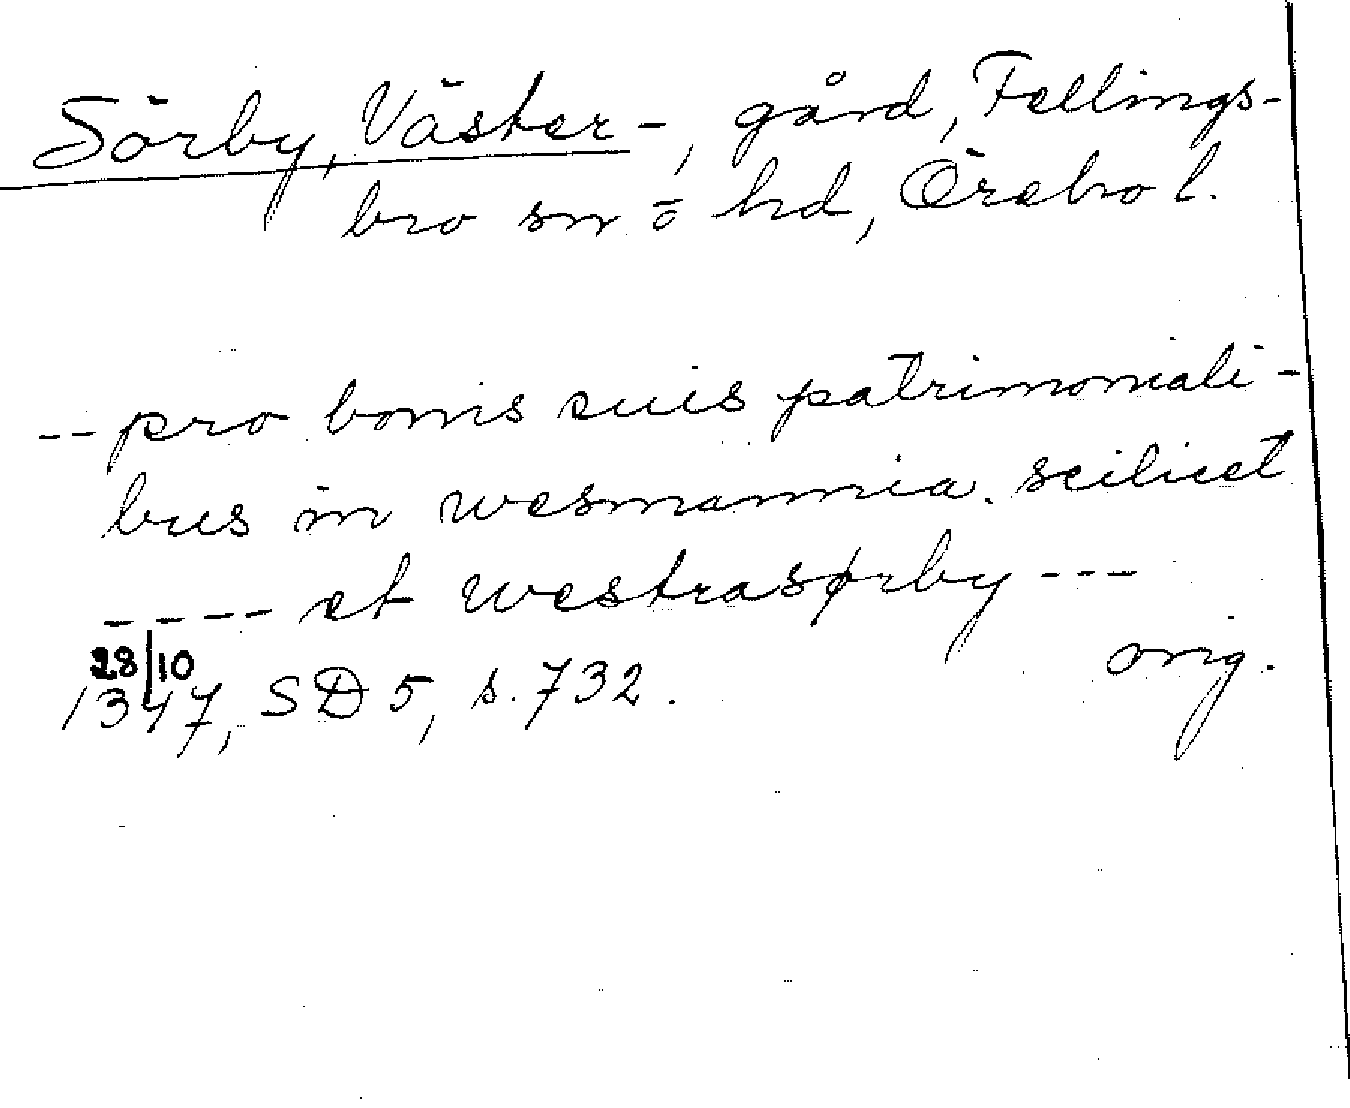 Sörby, Väster-, gård, Fellings-
bro sn o hd, Örebro l.
-- pro bonis suis patrimoniali-
bus in wesmannia. scilicet
---- et westrasørby ---
28/10
1347, SD 5, s. 732.
orig.